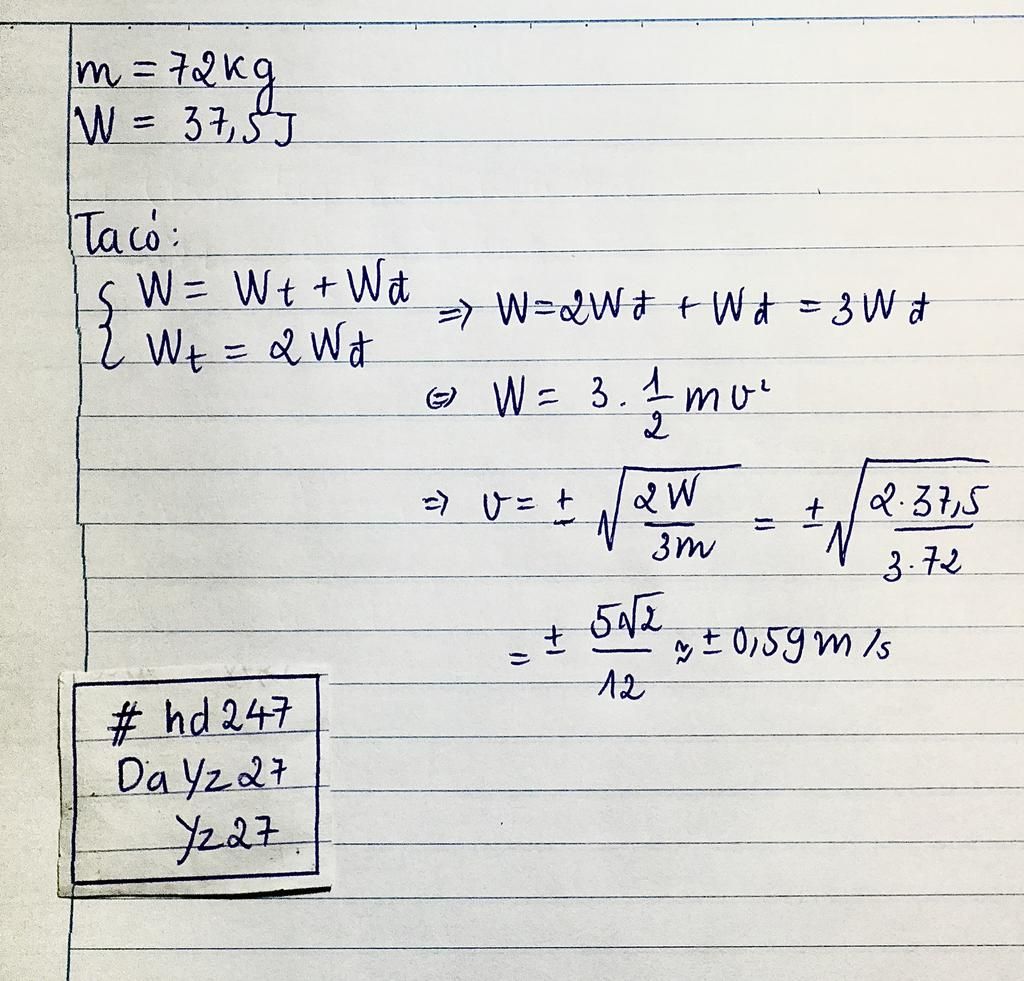 m = 72kg
W = 37,5J
Ta có:
{ W = Wt + Wđ => W = 2Wđ + Wđ = 3Wđ
{ Wt = 2Wđ
⇔ W = 3 . 1/2 mv²
=> v = ± √(2W/3m) = ± √(2.37,5/3.72)
= ± 5√2/12 ≈ ± 0,59m/s
# hd247
Da Yz27
Yz27